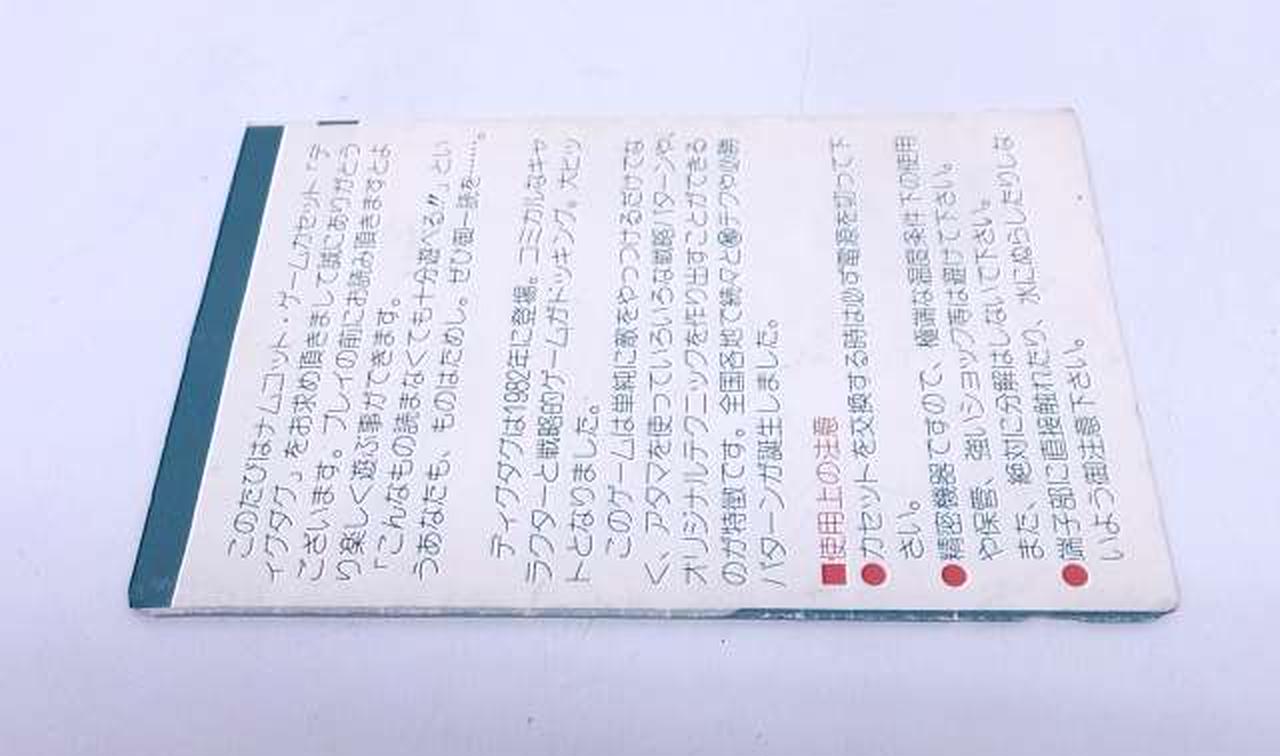 このたびはナムコット・ゲームカセット「デ
ィグダグ」をお求め頂きまして誠にありがとう
ございます。プレイの前にお読み頂きますとよ
り楽しく遊ぶ事ができます。
「こんなもの読まなくても十分遊べる〃」とい
うあなたも、ものはためし。ぜひ御一読を……。
ディグダグは1982年に登場。コミカルなキャ
ラクターと戦略的ゲームがドッキング。大ヒッ
トとなりました。
このゲームは単純に敵をやっつけるだけでな
く、アタマを使っていろいろな戦略パターンや、
オリジナルテクニックを作り出すことができる
のが特徴です。全国各地で続々と㊙テクや必勝
パターンが誕生しました。
■使用上の注意
●カセットを交換する時は必ず電源を切って下
さい。
●精密機器ですので、極端な温度条件下の使用
や保管、強いショック等は避けて下さい。
また、絶対に分解はしないで下さい。
●端子部に直接触れたり、水にぬらしたりしな
いよう御注意下さい。